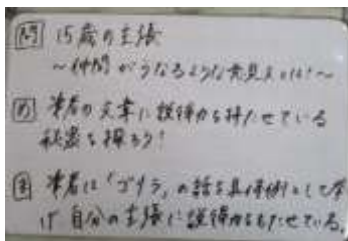 問 15歳の主張
～仲間がうなるような意見文とは!～
め 筆者の文章に説得力を持たせている
秘密を探ろう!
ま 筆者は「ゴリラ」の話を具体例として挙
げ自分の主張に説得力をもたせている。